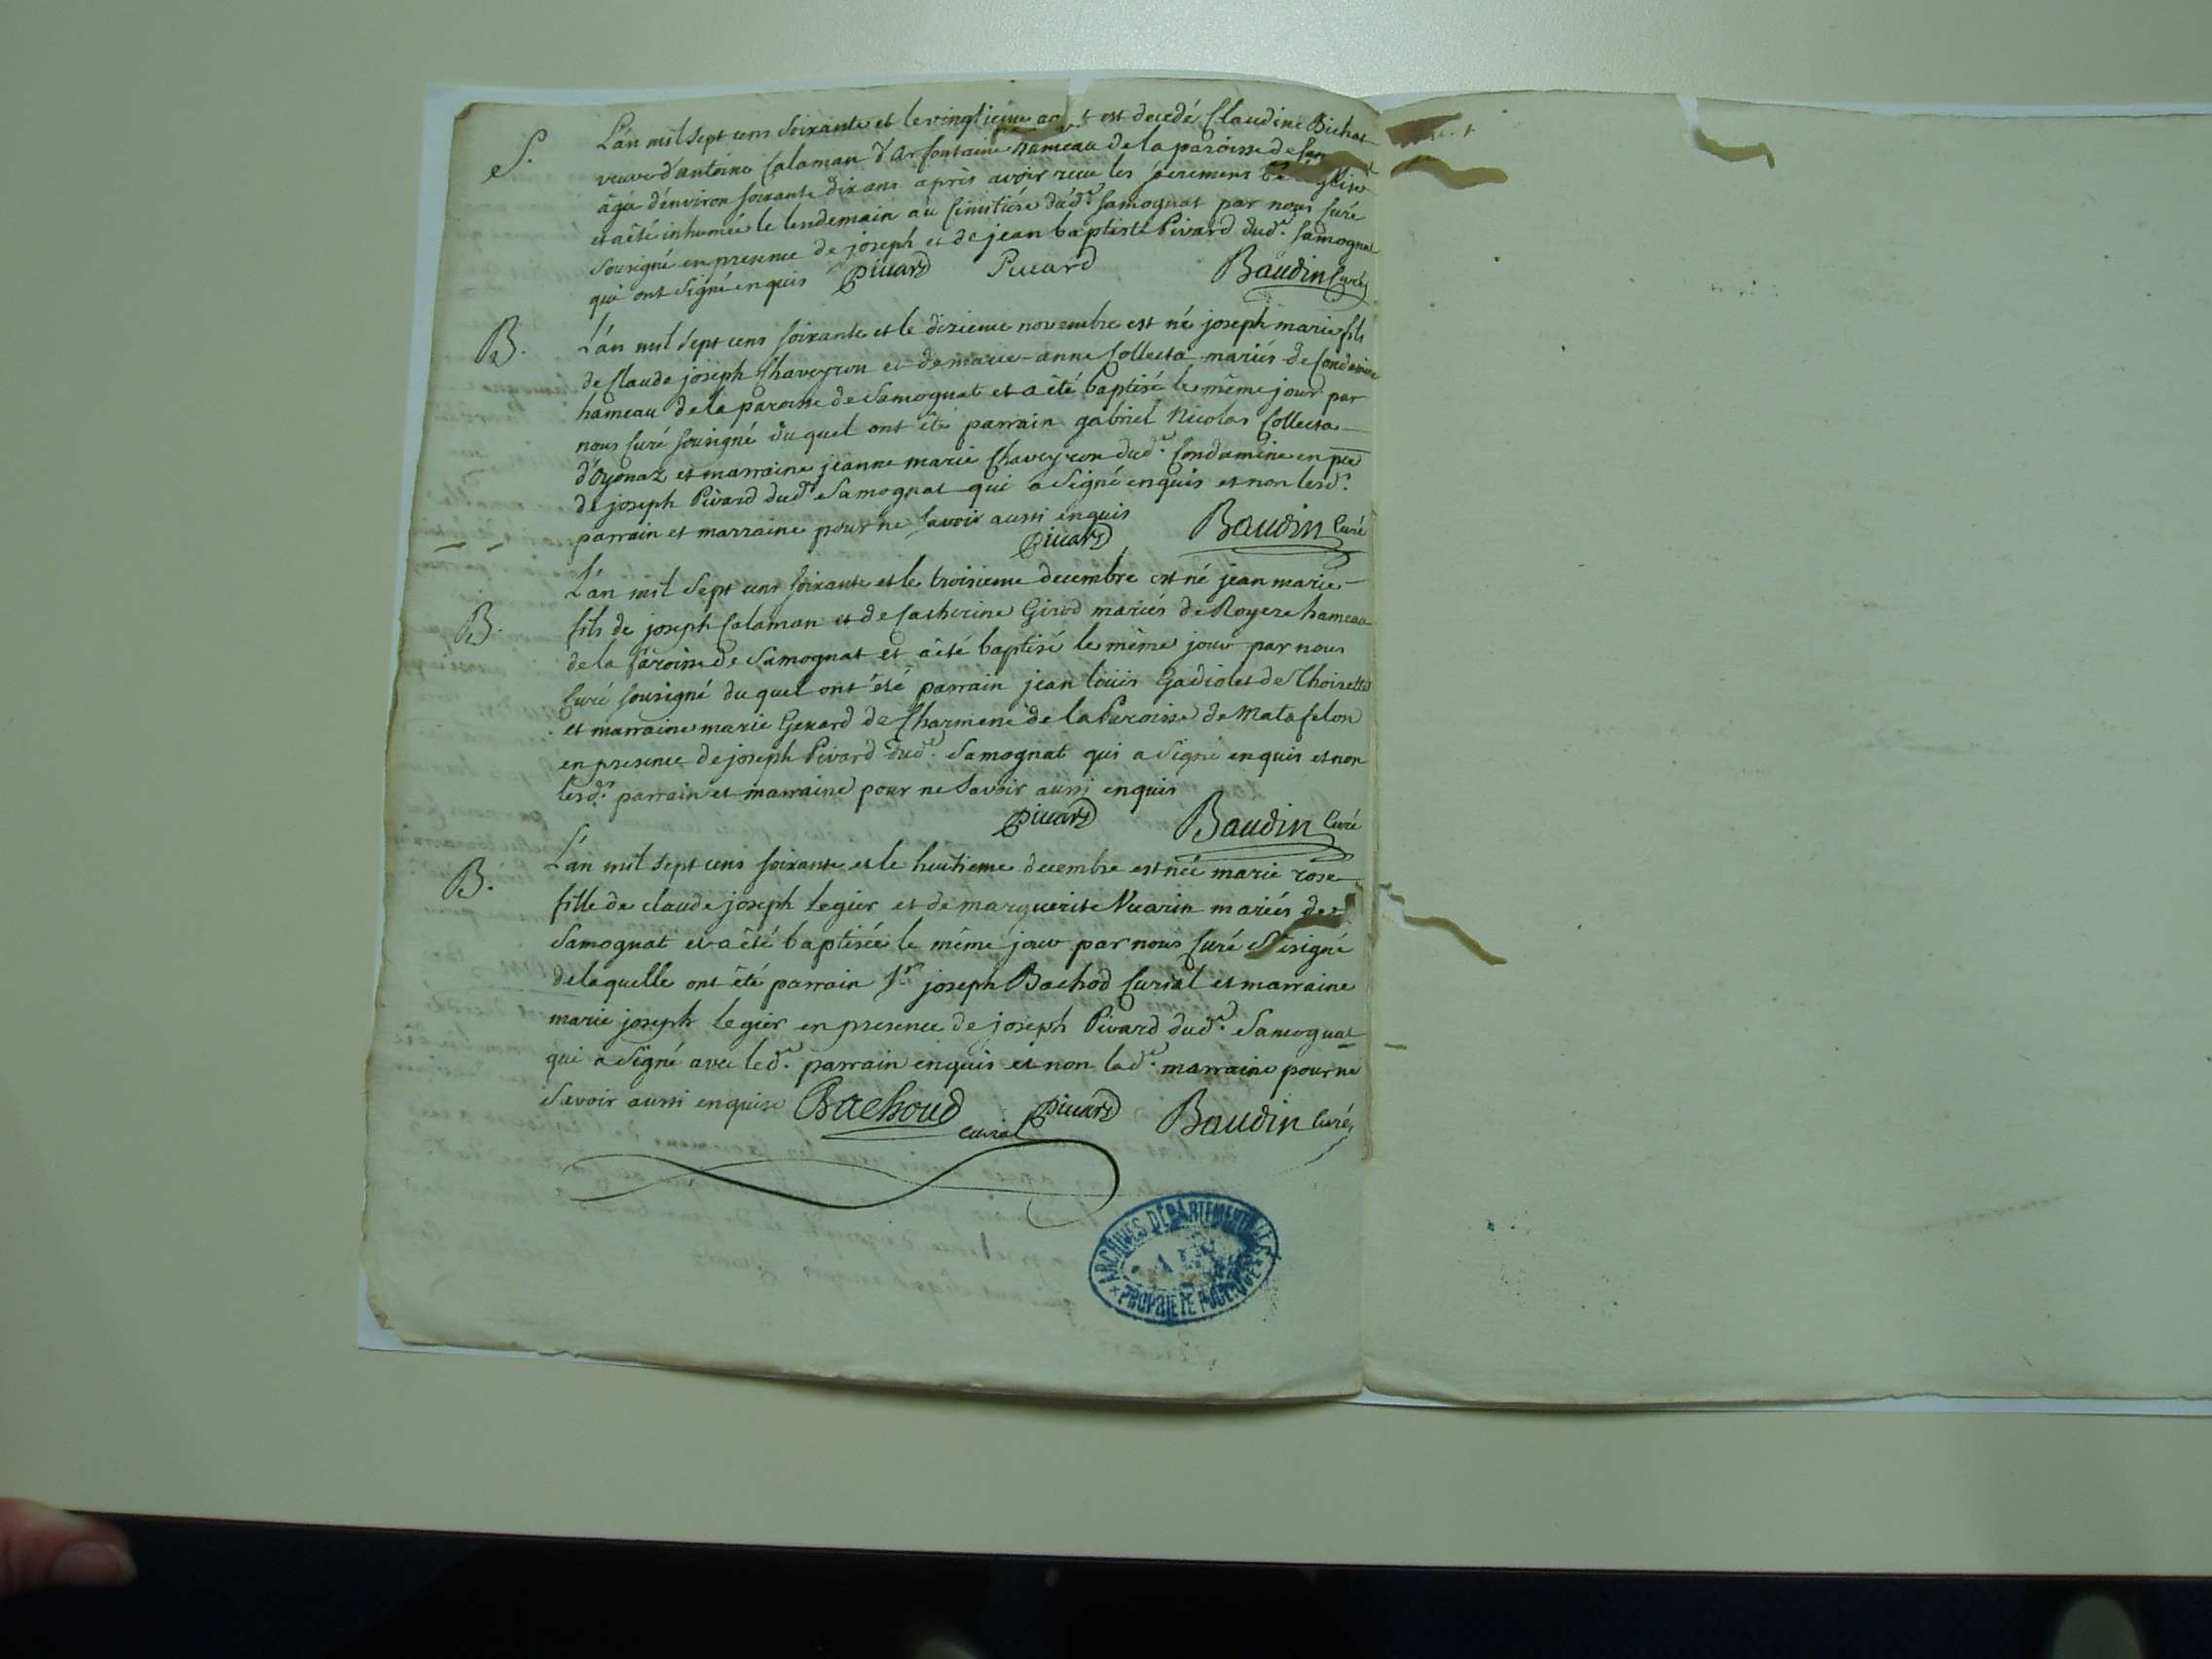 S.
L'an mil sept cens soixante et le vingtieme est decedé Claudine Bichat
veuve d'antoine Calaman d'Arfontaine hameau de la paroisse de
agée d'environ soixante dix ans après avoir recu les sacremens de l'eglise
et a été inhumée le lendemain au Cimitiére dud.t Samognat par nous Curé
sousigné en presence de joseph et de jean baptiste Pivard dud.t Samognat
qui ont signé enquis Pivard Pivard Baudin Curé
B.
L'an mil sept cens soixante et le dixieme novembre est né joseph marie fils
de Claude joseph Chaveyron et de marie-anne Collecta mariés de Condamine
hameau de la paroisse de Samognat et a été baptisé le même jour par
nous Curé sousigné du quel ont été parrain gabriel Nicolas Collecta
d'Oyonaz et marraine jeanne marie Chaveyron dud.t Condamine en pce
de joseph Pivard dud.t Samognat qui a signé enquis et non lesd.s
parrain et marraine pour ne savoir aussi enquis
Pivard Baudin Curé
L'an mil sept cens soixante et le troisieme decembre est né jean marie
B.
fils de joseph Calaman et de Catherine Girod mariés de Royere hameau
de la Paroisse de Samognat et a été baptisé le même jour par nous
Curé sousigné du quel ont été parrain jean loüis Gadiolet de Thoirette
et marraine marie Gerard de Charmene de la Paroisse de Matafelon
en presence de joseph Pivard dud.t Samognat qui a signé enquis et non
lesd.s parrain et marraine pour ne savoir aussi enquis
Pivard Baudin Curé
L'an mil sept cens soixante et le huitieme decembre est née marie rose
B.
fille de claude joseph legier et de marguerite Vuarin mariés de
Samognat et a été baptisée le même jour par nous Curé sousigné
de laquelle ont été parrain S.r joseph Bachod Curial et marraine
marie joseph legier en presence de joseph Pivard dud.t Samognat
qui a signé avec led.t parrain enquis et non lad.e marraine pour ne
savoir aussi enquise Bachoud curial Pivard Baudin Curé
ARCHIVES DÉPARTEMENTALES
AIN
PROPRIÉTÉ PUBLIQUE